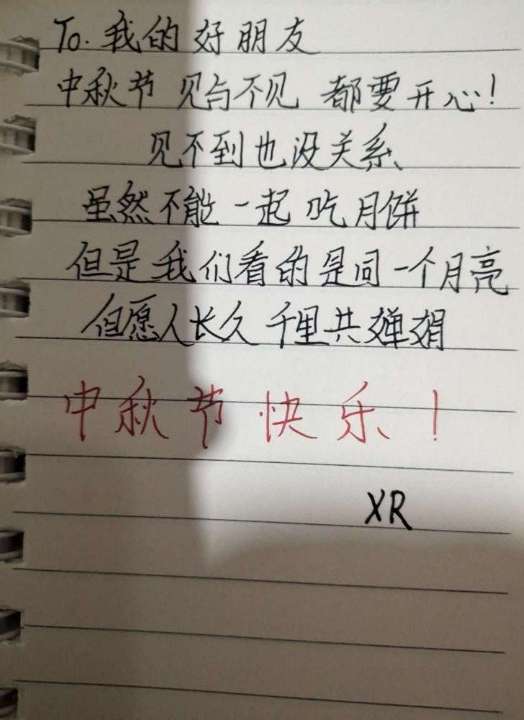 To. 我的好朋友
中秋节 见与不见 都要开心!
见不到也没关系
虽然不能一起吃月饼
但是我们看的是同一个月亮
但愿人长久 千里共婵娟
中秋节快乐!
XR